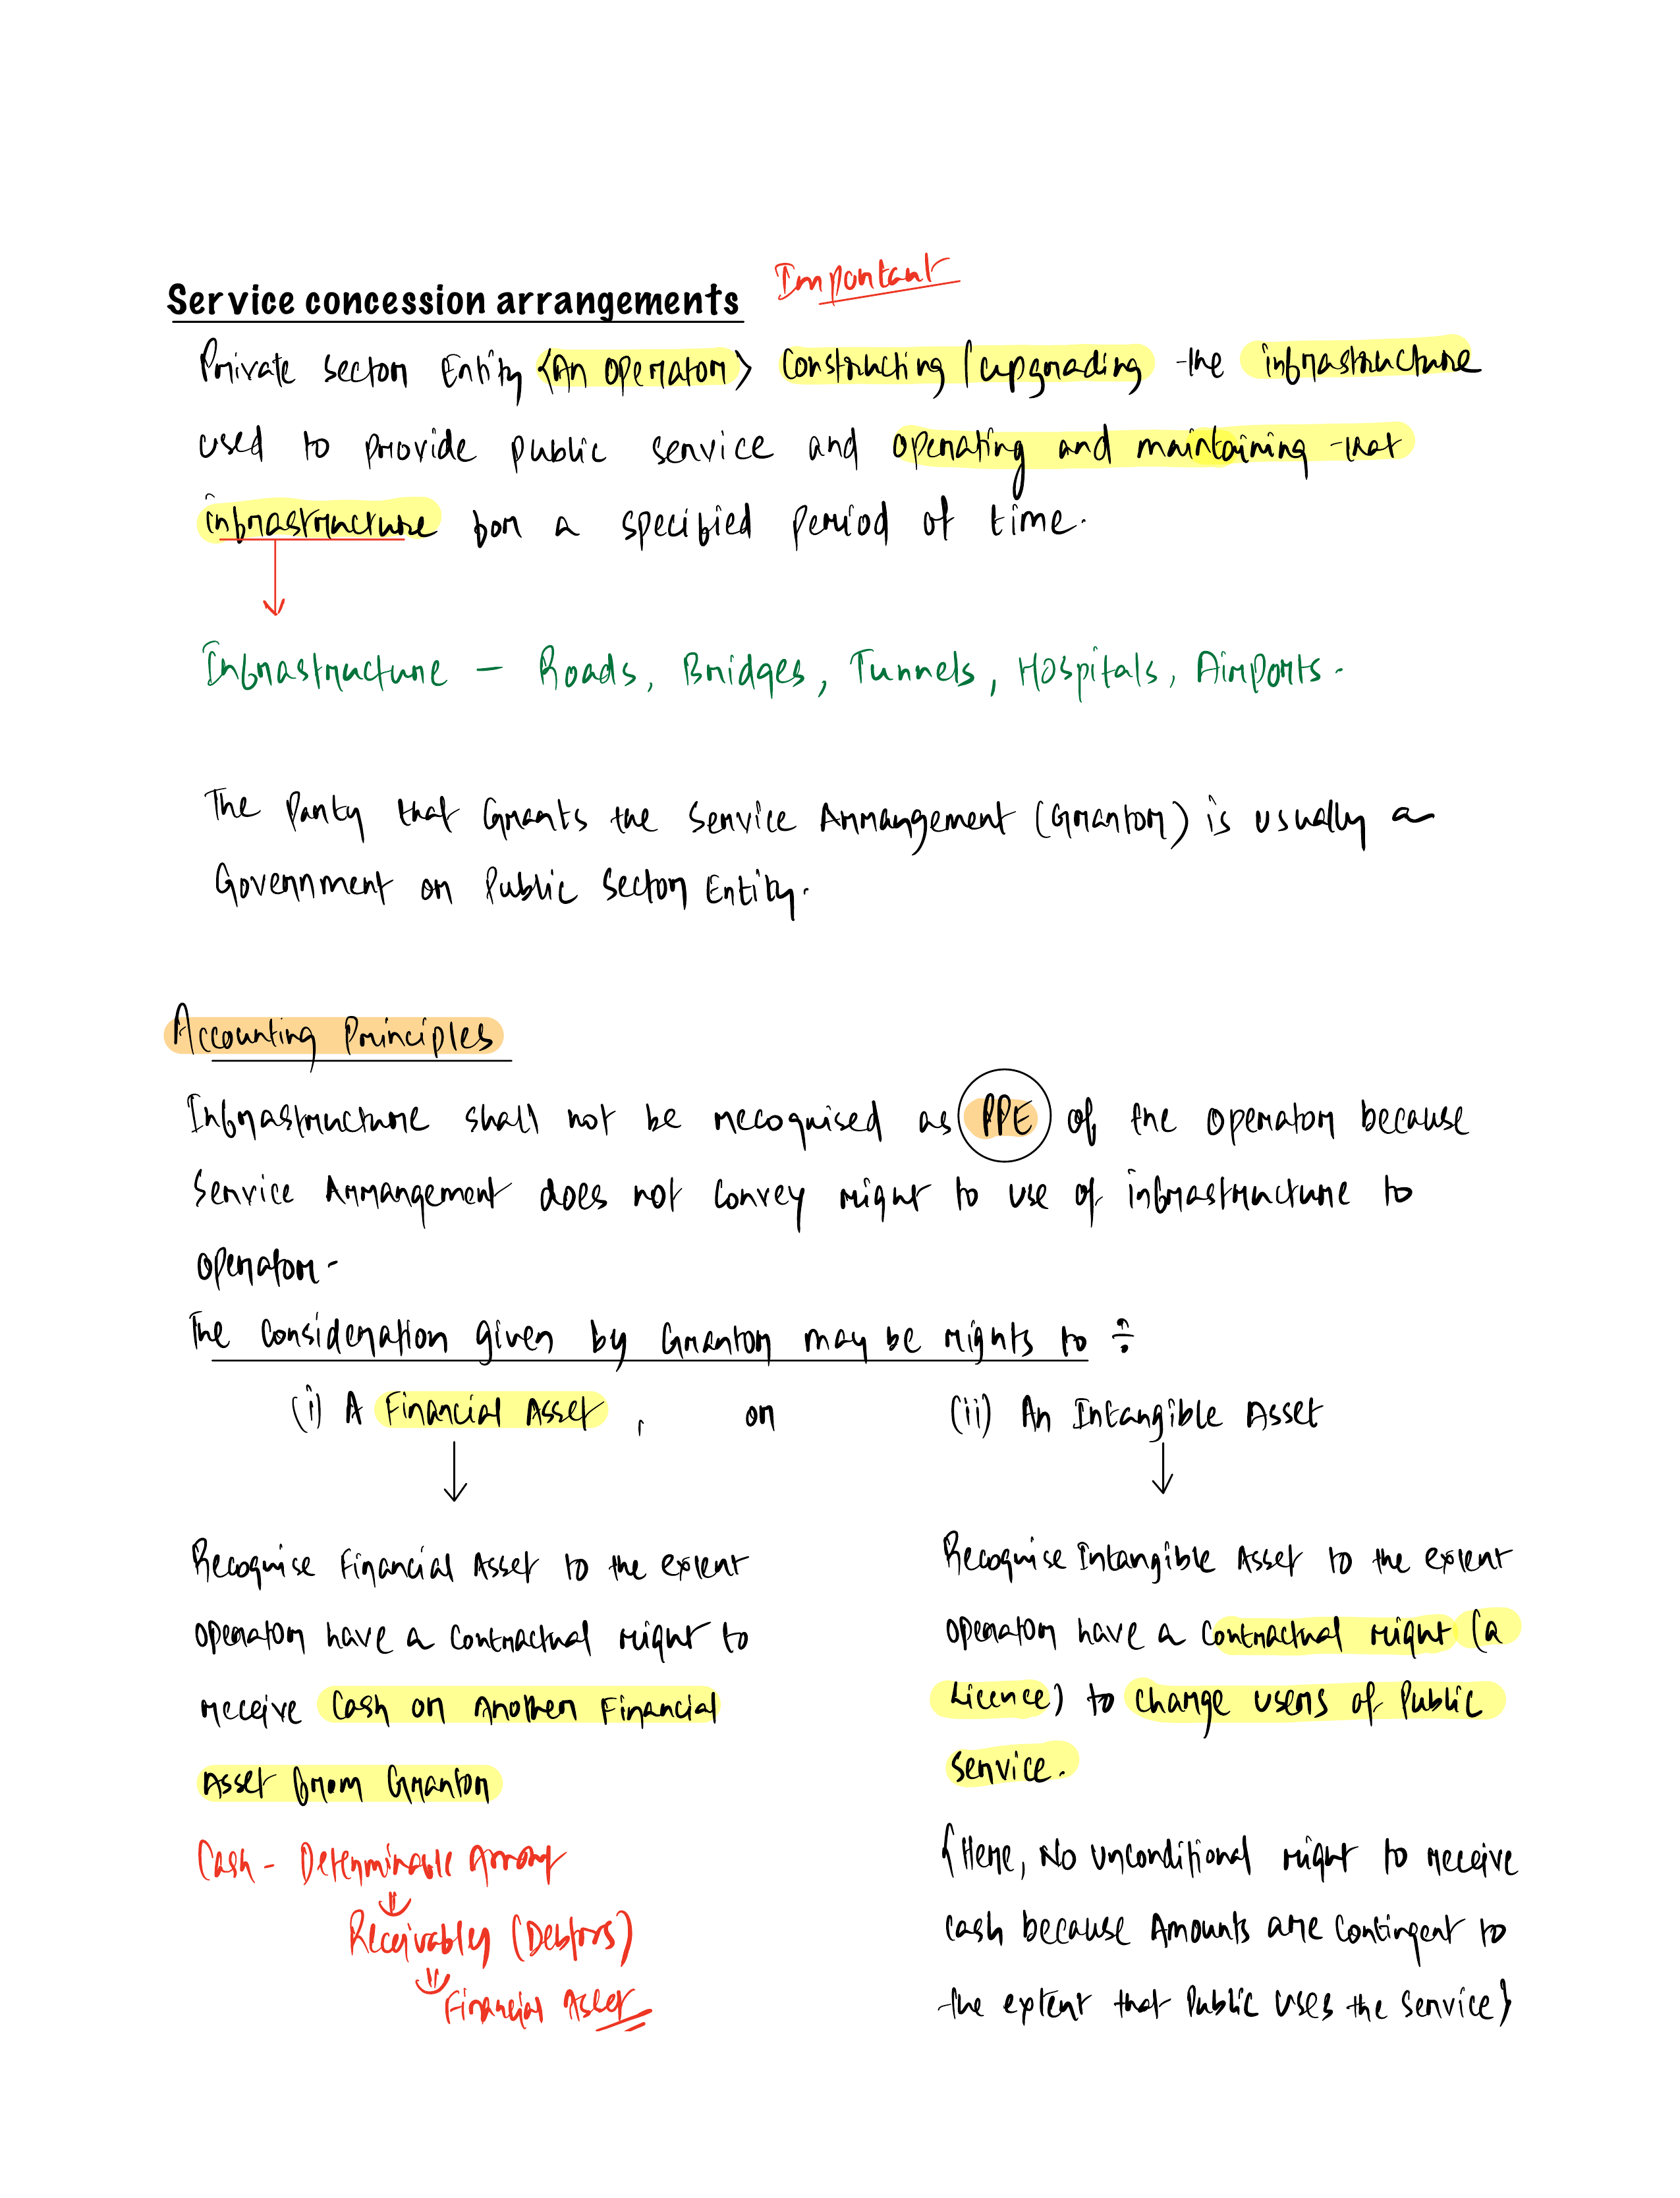 Service concession arrangements Important
Private Sector Entity {An operator} Constructing / upgrading the infrastructure
used to provide public service and operating and maintaining that
infrastructure for a specified period of time.
Infrastructure – Roads, Bridges, Tunnels, Hospitals, Airports.
The Party that Grants the Service Arrangement (Grantor) is usually a
Government or Public Sector Entity.
Accounting Principles
Infrastructure shall not be recognised as PPE of the operator because
Service Arrangement does not convey right to use of infrastructure to
operator.
The Consideration given by Grantor may be rights to ÷
(i) A Financial Asset , or (ii) An Intangible Asset
Recognise Financial Asset to the extent
operator have a Contractual right to
receive Cash or Another Financial
Asset from Grantor
Cash - Determinable Amount
Receivables (Debtors)
Financial Asset
Recognise Intangible Asset to the extent
operator have a Contractual right (a
Licence) to charge users of Public
Service.
{Here, No unconditional right to receive
cash because Amounts are contingent to
the extent that Public uses the Service}